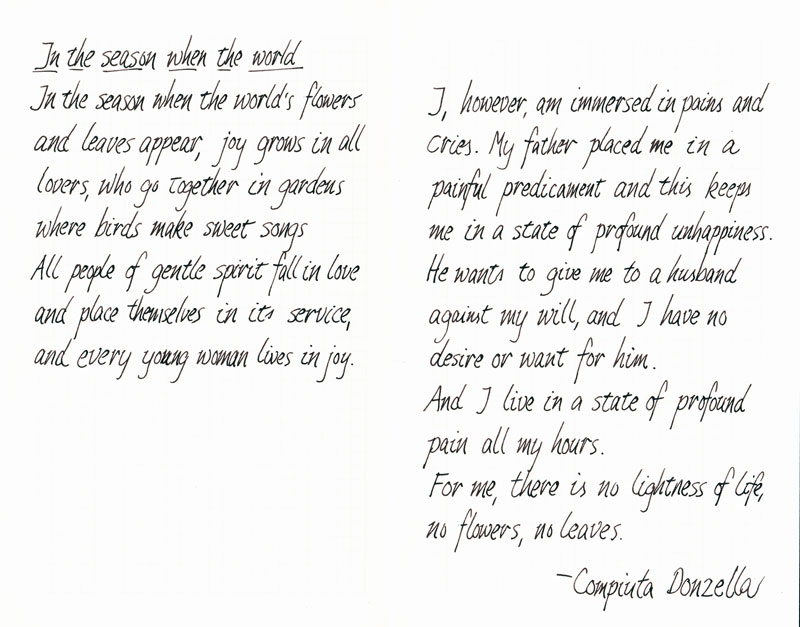 In the season when the world
In the season when the world's flowers
and leaves appear, joy grows in all
lovers, who go together in gardens
where birds make sweet songs
All people of gentle spirit fall in love
and place themselves in its service,
and every young woman lives in joy.
I, however, am immersed in pains and
cries. My father placed me in a
painful predicament and this keeps
me in a state of profound unhappiness.
He wants to give me to a husband
against my will, and I have no
desire or want for him.
And I live in a state of profound
pain all my hours.
For me, there is no lightness of life,
no flowers, no leaves.
-Compiuta Donzella